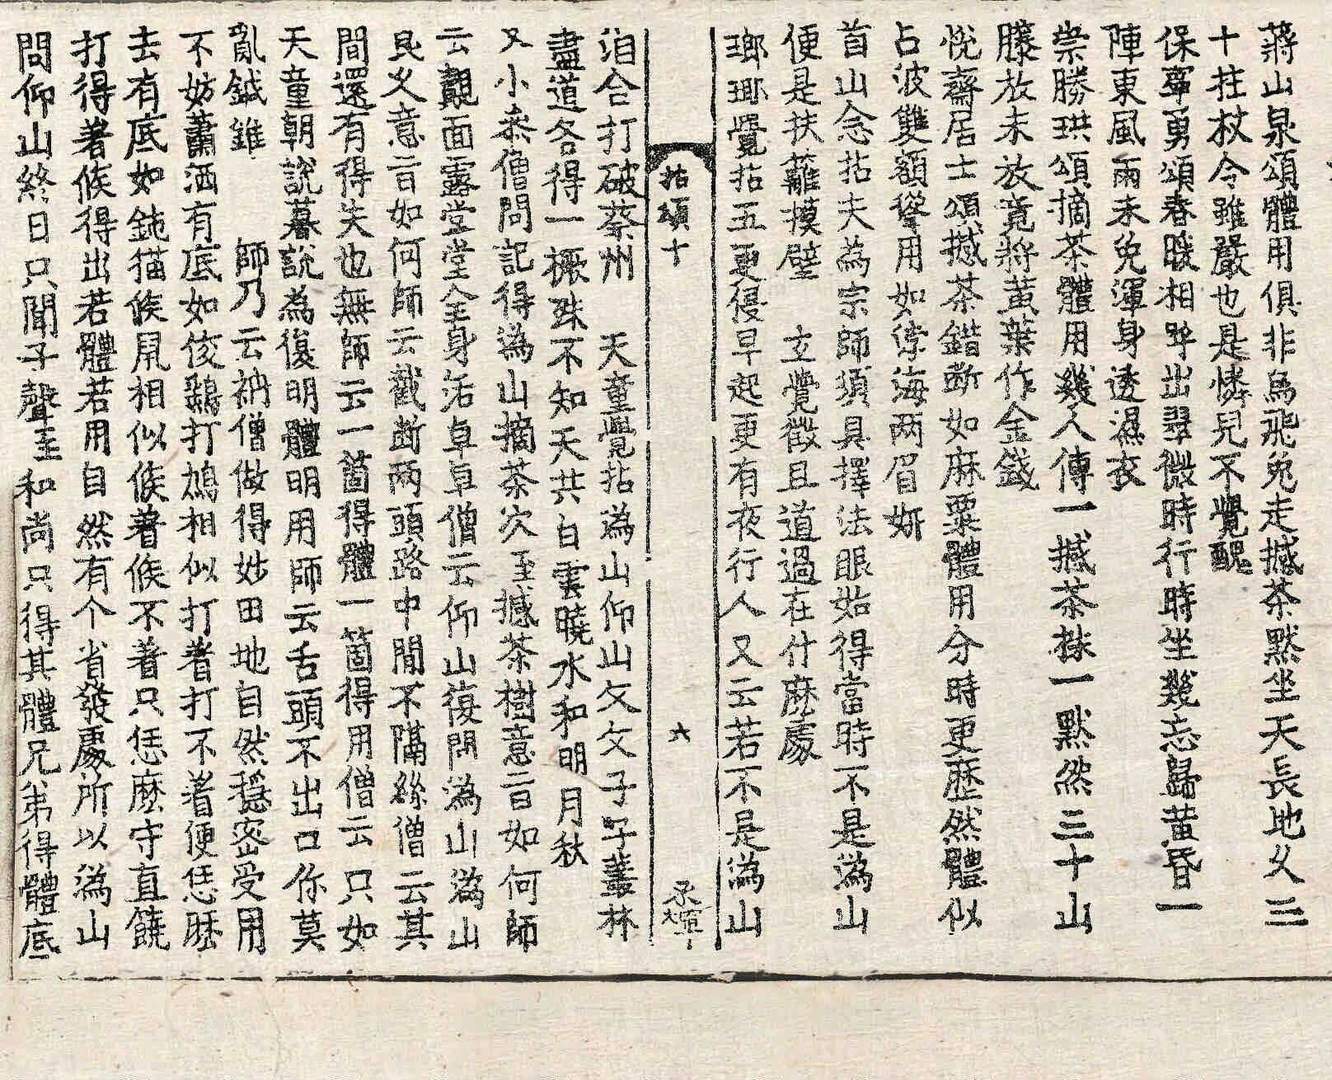 蔣山泉頌體用俱非烏飛兔走撼茶黙坐天長地久三
十拄杖令雖嚴也是憐兒不覺醜
保寧勇頌春暖相呼出翠微時行時坐幾忘歸黃昏一
陣東風雨未免渾身透濕衣
崇勝珙頌摘茶體用幾人傳一撼茶株一默然三十山
藤放未放竟將黃葉作金錢
悅齋居士頌撼茶錯斷如麻粟體用分時更歷然體似
占波雙額聳用如崇海两眉姸
首山念拈夫為宗師須具擇法眼始得當時不是溈山
便是扶籬摸壁 玄覺徵且道過在什麽處
瑯瑘覺拈五更侵早起更有夜行人又云若不是溈山
拈頌十 六
洎合打破蔡州 天童覺拈溈山仰山父父子子叢林
盡道各得一橛殊不知天共白雲曉水和明月秋
又小叅僧問記得溈山摘茶穴至撼茶樹意旨如何師
云覿面露堂堂全身活卓卓僧云仰山復問溈山溈山
良乆意旨如何師云截斷两頭路中間不隔絲僧云其
間還有得失也無師云一箇得體一箇得用僧云只如
天童朝說暮說為復明體明用師云舌頭不出口你莫
亂鉞錐 師乃云衲僧做得妙田地自然穩密受用
不妨蕭洒有底如俊鷂打鳩相似打著打不著便恁麽
去有底如鈍猫候鼠相似候著候不著只恁麽守直饒
打得著候得出若體若用自然有个省發處所以溈山
問仰山終日只聞子聲至和尚只得其體兄弟得體底